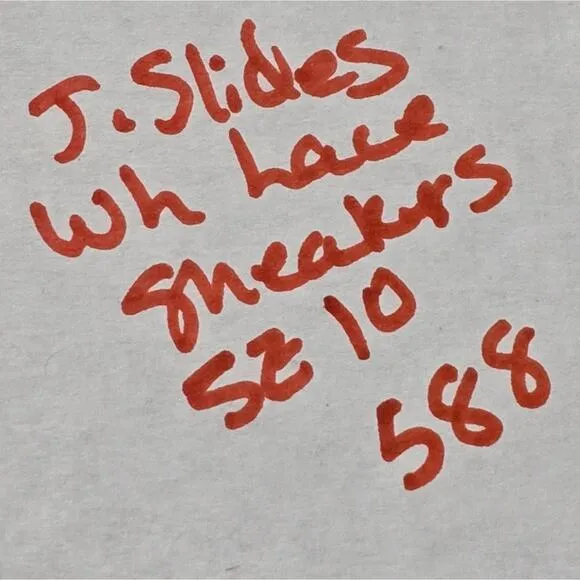 J.Slides
Wh Lace
Sneakers
SZ 10
588